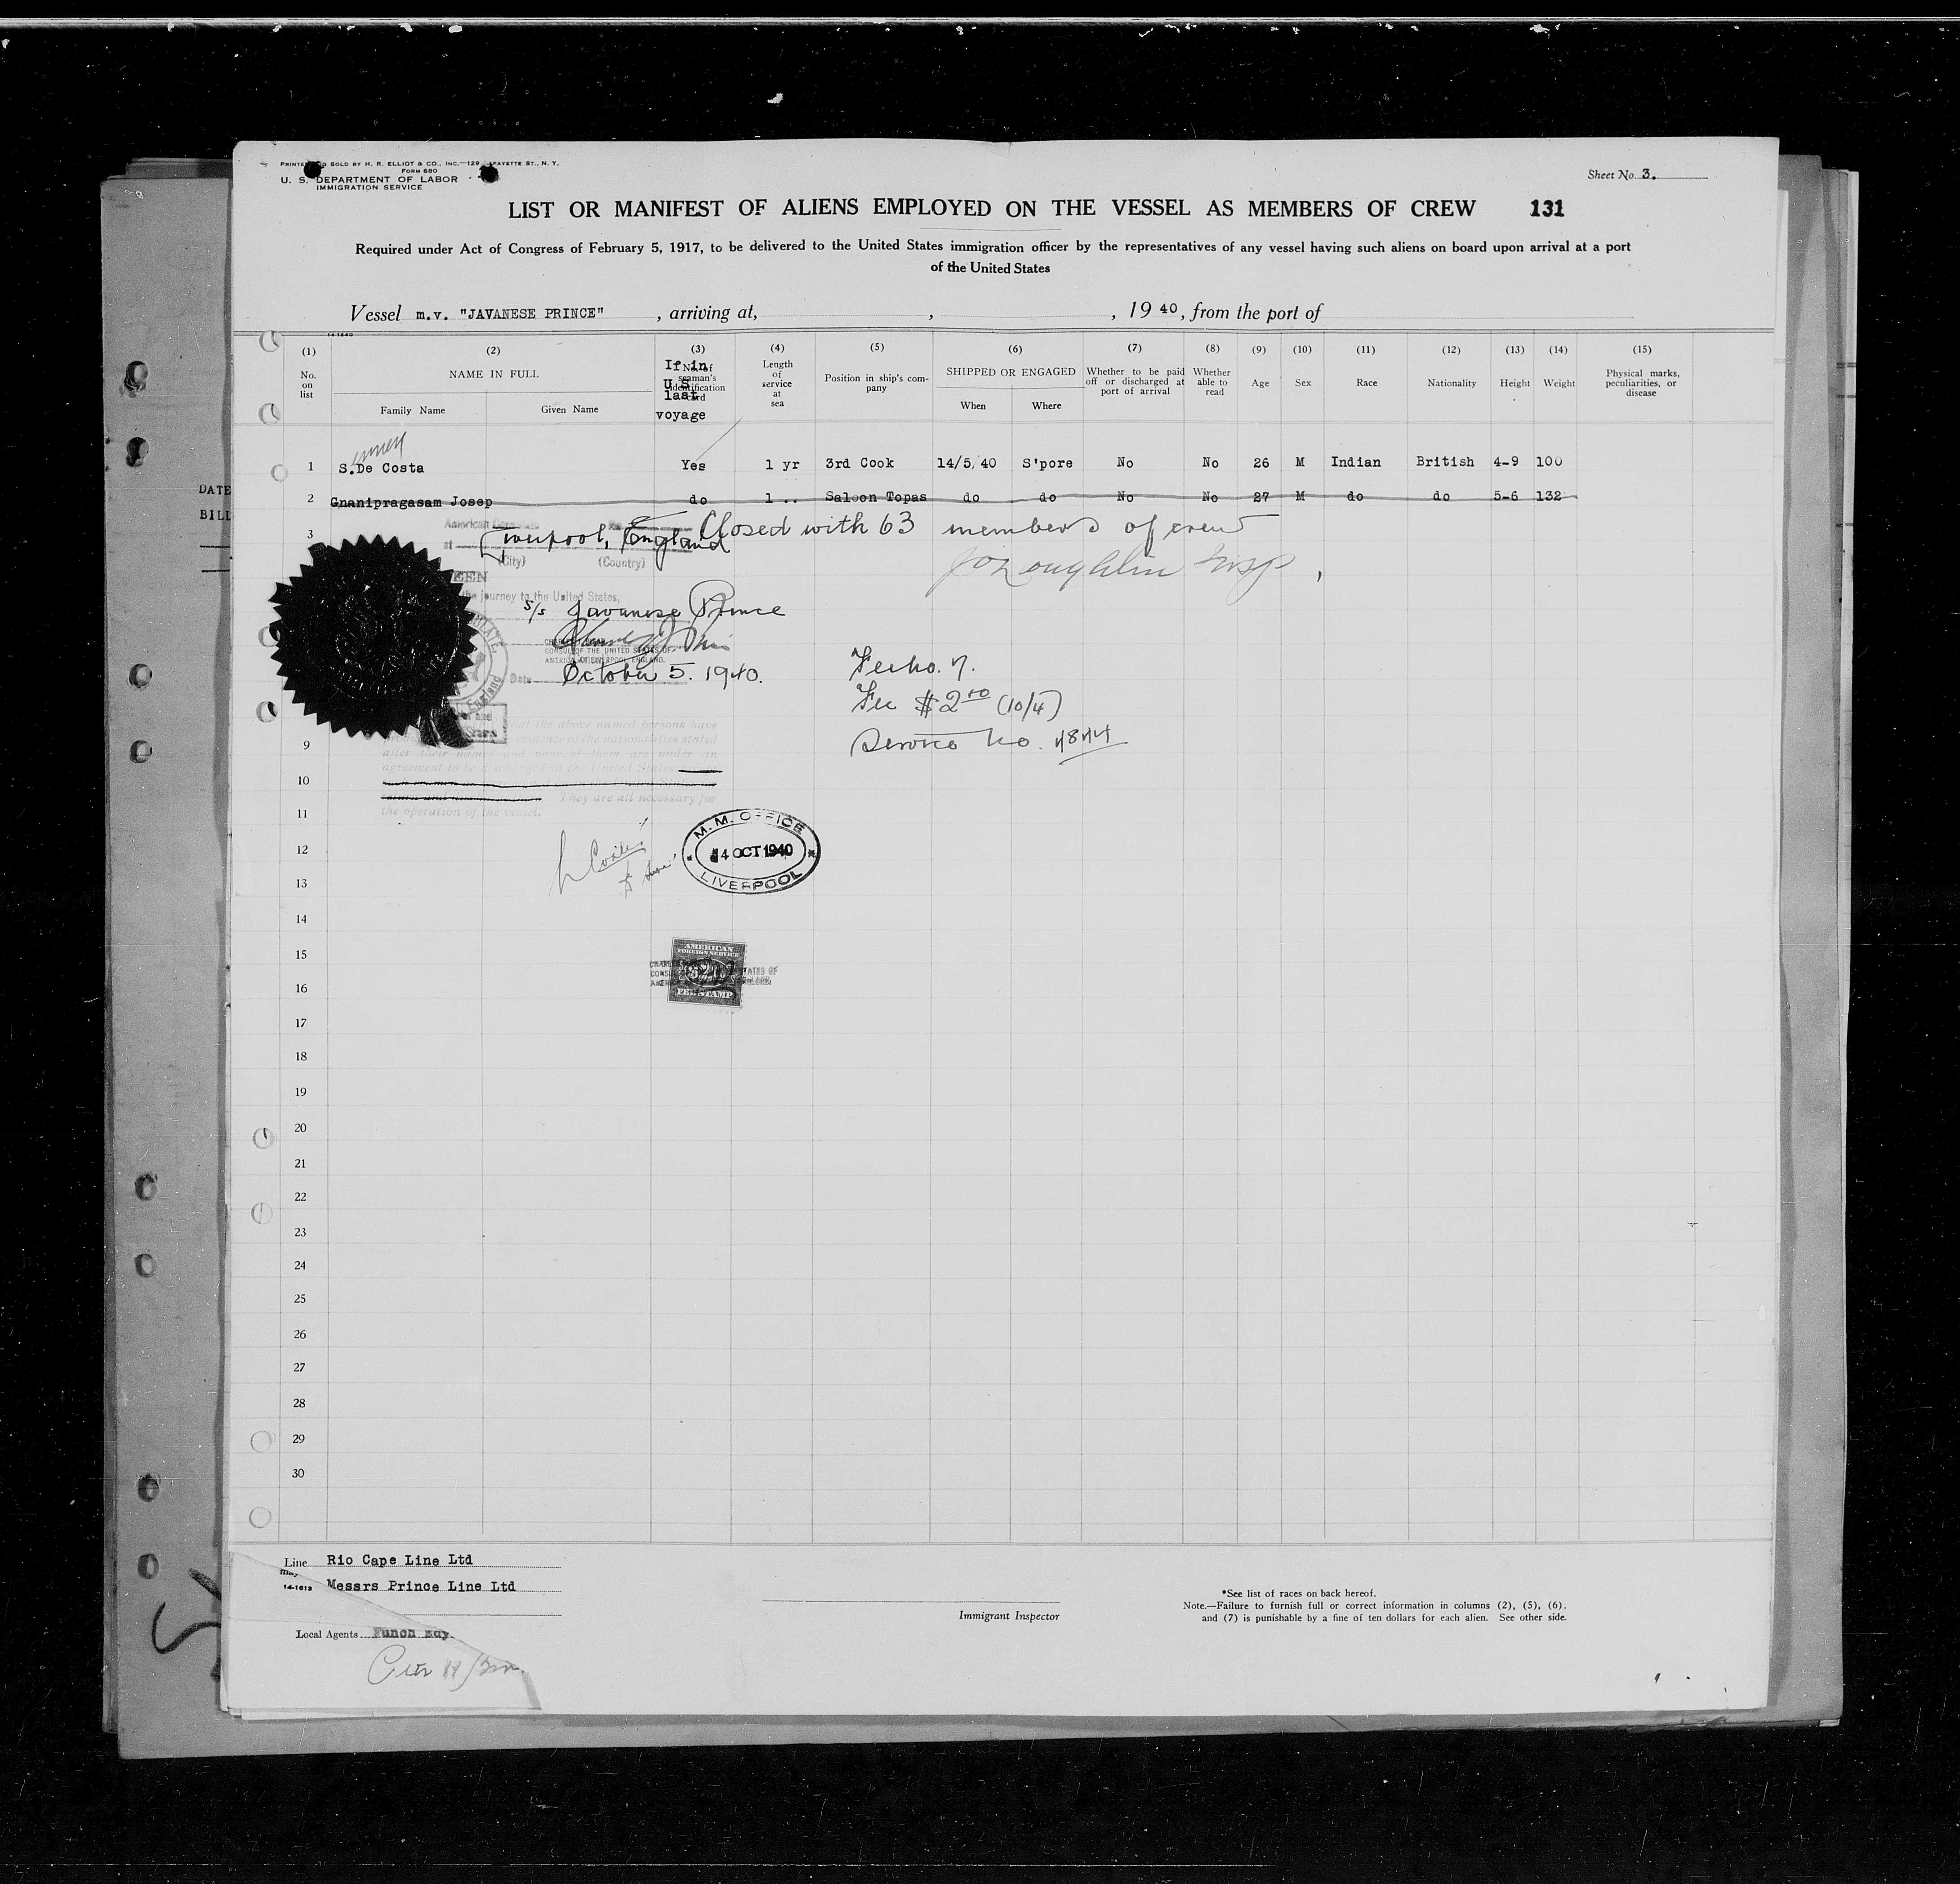 SOLD BY H. R. ELLIOT & CO., INC.—129 LAFAYETTE ST., N. Y.
FORM 680
U. S. DEPARTMENT OF LABOR
IMMIGRATION SERVICE
Sheet No. 3.
LIST OR MANIFEST OF ALIENS EMPLOYED ON THE VESSEL AS MEMBERS OF CREW 131
Required under Act of Congress of February 5, 1917, to be delivered to the United States immigration officer by the representatives of any vessel having such aliens on board upon arrival at a port
of the United States
Vessel m.v. "JAVANESE PRINCE" , arriving at, , , 19 40, from the port of
(1) (2) (3) (4) (5) (6) (7) (8) (9) (10) (11) (12) (13) (14) (15)
No. on list
NAME IN FULL
Family Name Given Name
No. of seaman's identification card
If in U.S. last voyage
Length of service at sea
Position in ship's company
SHIPPED OR ENGAGED
When Where
Whether to be paid off or discharged at port of arrival
Whether able to read
Age
Sex
Race
Nationality
Height
Weight
Physical marks, peculiarities, or disease
1 S.De Costa Yes 1 yr 3rd Cook 14/5/40 S'pore No No 26 M Indian British 4-9 100
2 Gnanipragasam Josep do 1 .. Saloon Topas do do No No 27 M do do 5-6 132
3
Liverpool, England
Closed with 63 members of crew
(City) (Country)
the journey to the United States,
s/s Javanese Prince
CONSUL OF THE UNITED STATES OF
AMERICA AT LIVERPOOL, ENGLAND.
Date October 5. 1940.
Fee No. 7.
Fee $2.50 (10/4)
Service No. 4844
that the above named persons have
of the nationalities stated
after their names
agreement to be discharged in the United States
They are all necessary for
the operation of the vessel.
9
10
11
12
13
14
15
16
17
18
19
20
21
22
23
24
25
26
27
28
29
30
M. M. OFFICE
4 OCT 1940
LIVERPOOL
AMERICAN
FOREIGN SERVICE
FEE STAMP
DATE
BILL
Line Rio Cape Line Ltd
14-1613 Messrs Prince Line Ltd
Local Agents
Immigrant Inspector
*See list of races on back hereof.
Note.—Failure to furnish full or correct information in columns (2), (5), (6),
and (7) is punishable by a fine of ten dollars for each alien. See other side.